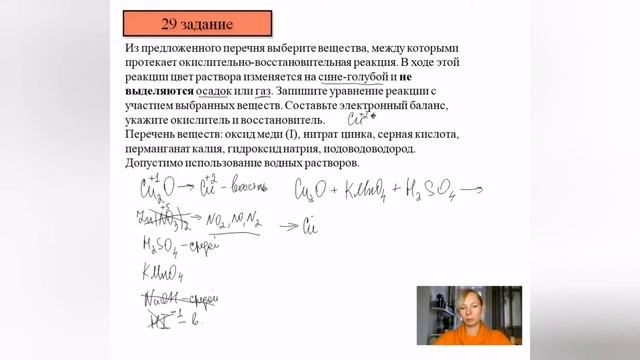 29 задание
Из предложенного перечня выберите вещества, между которыми
протекает окислительно-восстановительная реакция. В ходе этой
реакции цвет раствора изменяется на сине-голубой и не
выделяются осадок или газ. Запишите уравнение реакции с
участием выбранных веществ. Составьте электронный баланс,
укажите окислитель и восстановитель.
Перечень веществ: оксид меди (I), нитрат цинка, серная кислота,
перманганат калия, гидроксид натрия, иодоводоводород.
Допустимо использование водных растворов.
Cu₂⁺¹O → Cu⁺² - восст
Cu₂O + KMnO₄ + H₂SO₄ →
Zn(N⁺⁵O₃)₂ → NO₂, NO, N₂
→ Cu
H₂SO₄ - средой
KMnO₄
NaOH - средой
HI⁻¹ - в.